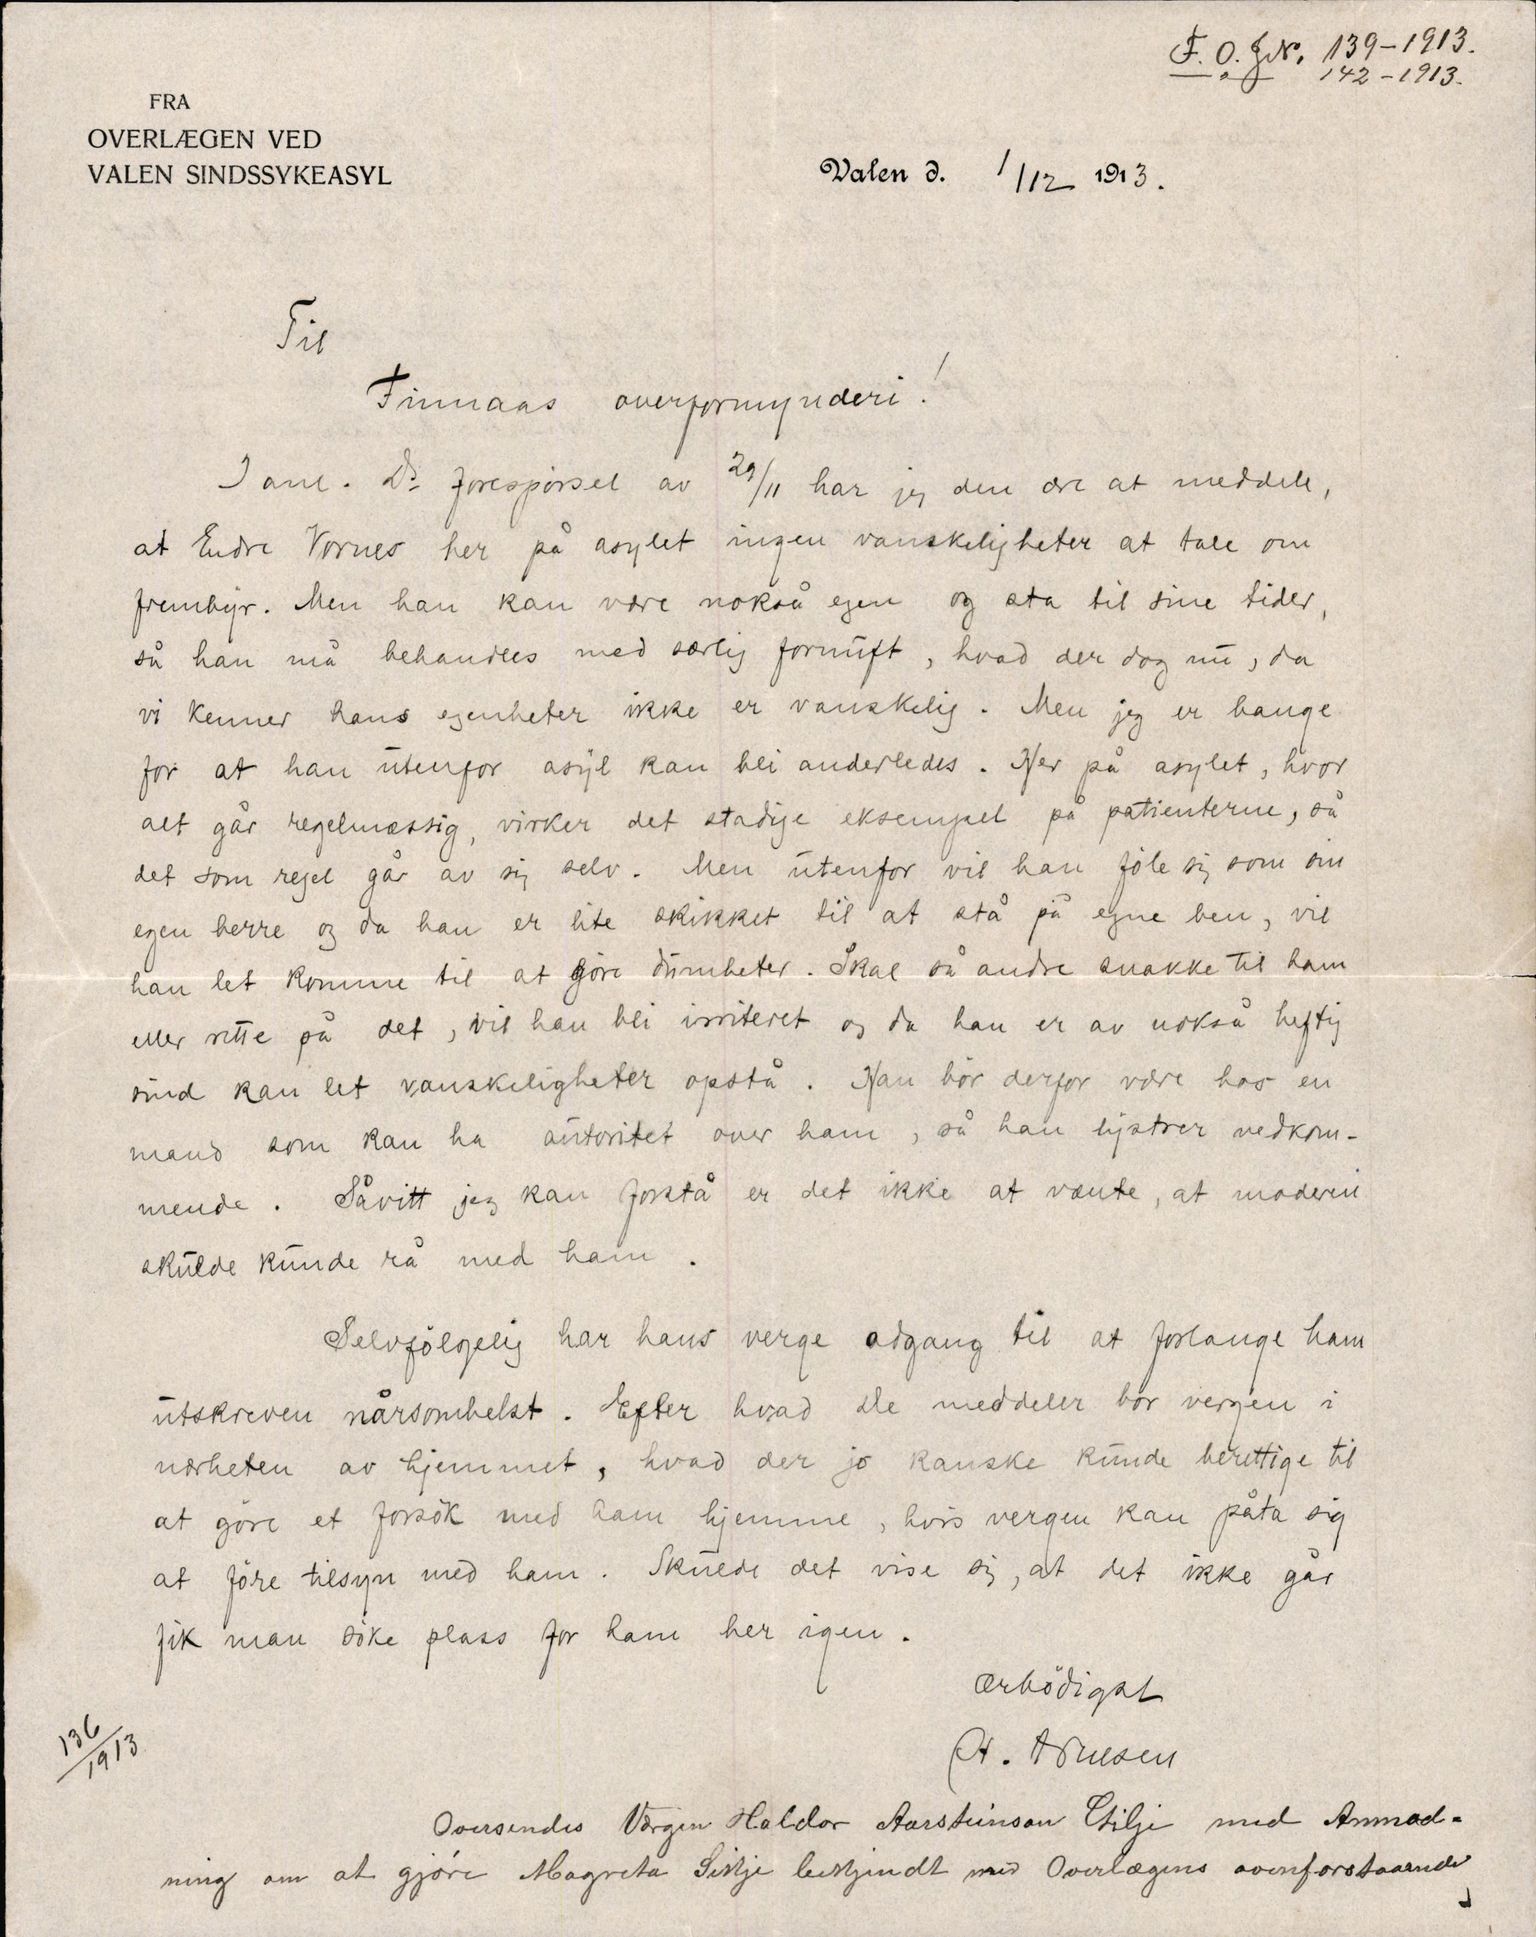 F. O. J. No. 139-1913.
142-1913.
FRA
OVERLÆGEN VED
VALEN SINDSSYKEASYL
Valen d. 1/12 1913.
Til
Finnaas overformynderi!
I anl. Ds forespörsel av 29/11 har jeg den ære at meddele,
at Endre Vornes her på asylet ingen vanskeligheter at tale om
frembyr. Men han kan være nokså egen og sta til sine tider,
så han må behandles med særlig fornuft, hvad der dog nu, da
vi kenner hans egenheter ikke er vanskelig. Men jeg er bange
for at han utenfor asyl kan bli anderledes. Her på asylet, hvor
alt går regelmæssig, virker det stadige eksempel på patienterne, så
det som regel går av sig selv. Men utenfor vil han föle sig som sin
egen herre og da han er lite skikket til at stå på egne ben, vil
han let komme til at göre dumheter. Skal så andre snakke til ham
eller rette på det, vil han bli irriteret og da han er av nokså heftig
sind kan let vanskeligheter opstå. Han bör derfor være hos en
mand som kan ha autoritet over ham, så han lystrer vedkom-
mende. Såvitt jeg kan forstå er det ikke at vænte, at moderen
skulde kunde rå med ham.
Selvfölgelig har hans verge adgang til at forlange ham
utskreven nårsomhelst. Efter hvad De meddeler bor vergen i
nærheten av hjemmet, hvad der jo kanske kunde berettige til
at göre et forsök med ham hjemme, hvis vergen kan påta sig
at före tilsyn med ham. Skulde det vise sig, at det ikke går
fik man söke plass for ham her igen.
Ærbödigst
136/1913
Oversendes Værgen Haldor Aarsteinson med Anmod-
ning om at gjöre Magreta bekjendt med Overlægens ovenforstaaende